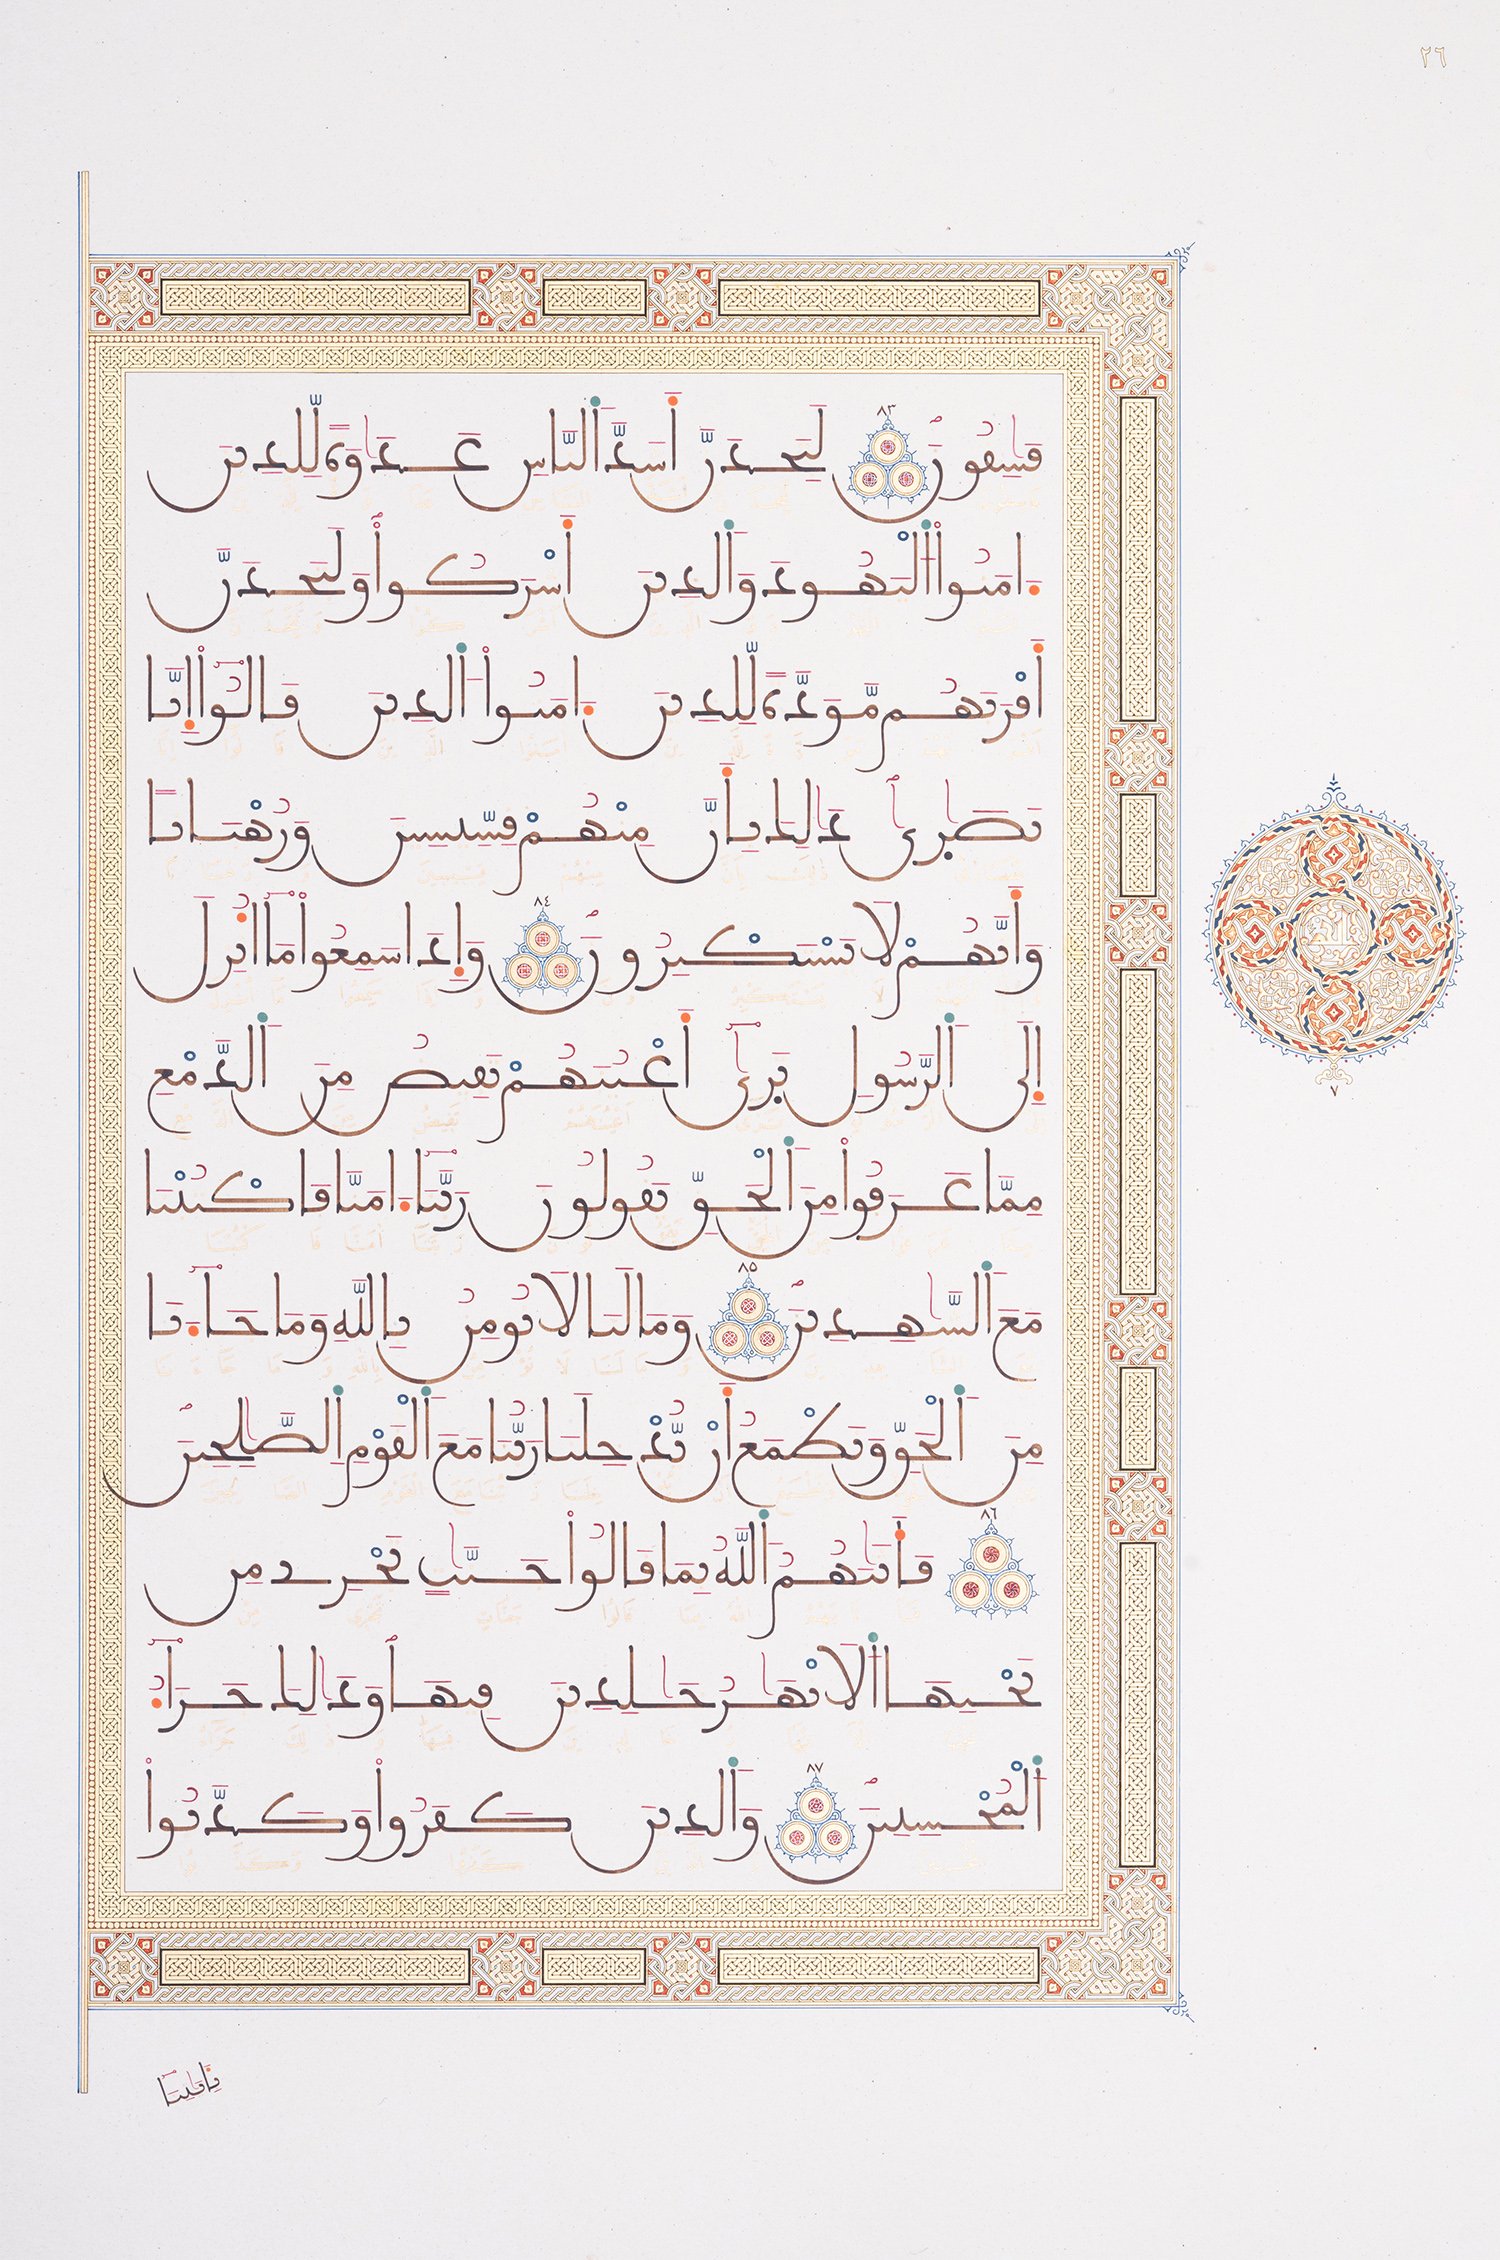 ٢٦
فَٰسِقُونَ ٨٣ لَتَجِدَنَّ أَشَدَّ ٱلنَّاسِ عَدَٰوَةً لِّلَّذِينَ
ءَامَنُوا۟ ٱلْيَهُودَ وَٱلَّذِينَ أَشْرَكُوا۟ وَلَتَجِدَنَّ
أَقْرَبَهُم مَّوَدَّةً لِّلَّذِينَ ءَامَنُوا۟ ٱلَّذِينَ قَالُوٓا۟ إِنَّا
نَصَٰرَىٰ ذَٰلِكَ بِأَنَّ مِنْهُمْ قِسِّيسِينَ وَرُهْبَانًا
وَأَنَّهُمْ لَا يَسْتَكْبِرُونَ ٨٤ وَإِذَا سَمِعُوا۟ مَآ أُنزِلَ
إِلَى ٱلرَّسُولِ تَرَىٰٓ أَعْيُنَهُمْ تَفِيضُ مِنَ ٱلدَّمْعِ
مِمَّا عَرَفُوا۟ مِنَ ٱلْحَقِّ يَقُولُونَ رَبَّنَآ ءَامَنَّا فَٱكْتُبْنَا
مَعَ ٱلشَّٰهِدِينَ ٨٥ وَمَا لَنَا لَا نُؤْمِنُ بِٱللَّهِ وَمَا جَآءَنَا
مِنَ ٱلْحَقِّ وَنَطْمَعُ أَن يُدْخِلَنَا رَبُّنَا مَعَ ٱلْقَوْمِ ٱلصَّٰلِحِينَ
٨٦ فَأَثَٰبَهُمُ ٱللَّهُ بِمَا قَالُوا۟ جَنَّٰتٍ تَجْرِى مِن
تَحْتِهَا ٱلْأَنْهَٰرُ خَٰلِدِينَ فِيهَا وَذَٰلِكَ جَزَآءُ
ٱلْمُحْسِنِينَ ٨٧ وَٱلَّذِينَ كَفَرُوا۟ وَكَذَّبُوا۟
٧
بِـَٔايَٰتِنَآ